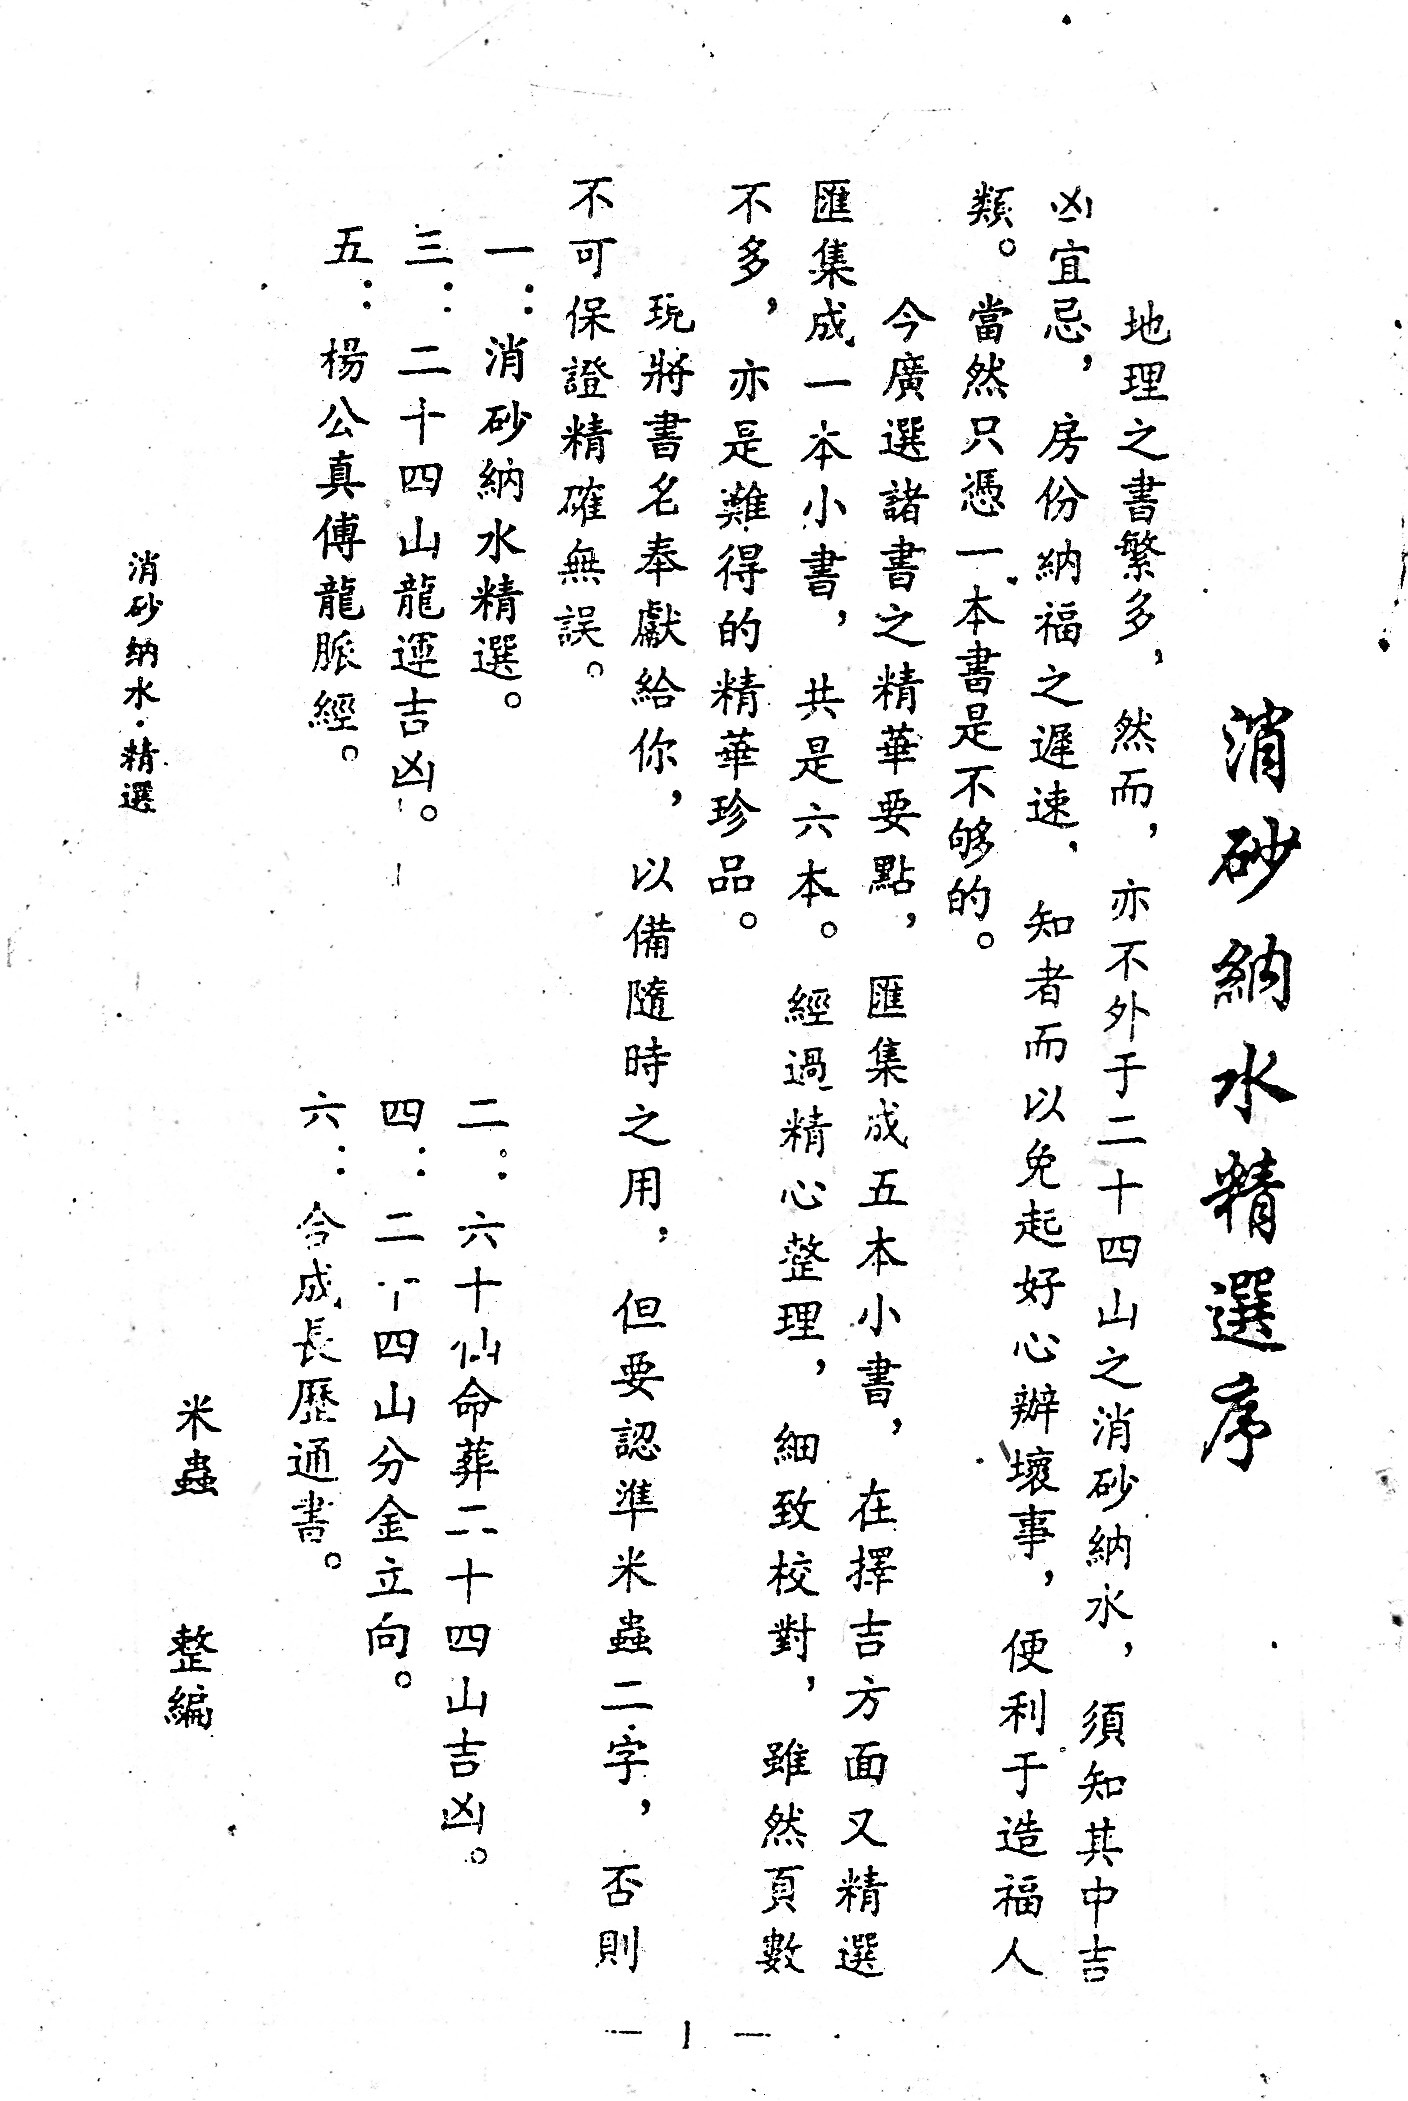 消砂納水精選序
地理之書繁多，然而，亦不外于二十四山之消砂納水，須知其中吉
凶宜忌，房份納福之遲速，知者而以免起好心辦壞事，便利于造福人
類。當然只憑一本書是不够的。
今廣選諸書之精華要點，匯集成五本小書，在擇吉方面又精選
匯集成一本小書，共是六本。經過精心整理，細致校對，雖然頁數
不多，亦是難得的精華珍品。
現將書名奉獻給你，以備隨時之用，但要認準米蟲二字，否則
不可保證精確無誤。
一：消砂納水精選。
二：六十仙命葬二十四山吉凶。
三：二十四山龍運吉凶。
四：二十四山分金立向。
五：楊公真傅龍脈經。
六：合成長歷通書。
米蟲 整編
消砂纳水·精選
— 1 —